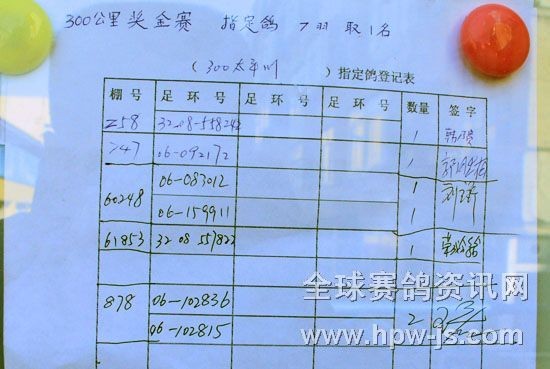 300公里奖金赛 指定鸽 7羽 取1名
(300太平川 )指定鸽登记表
棚号 足环号 足环号 足环号 数量 签字
258 32-08-558242 1
747 06-092172 1
60248 06-083012 1
06-159911 1
61853 32 08 557822 1
878 06-102836 2
06-102815
全球赛鸽资讯网
www.hpw-js.com